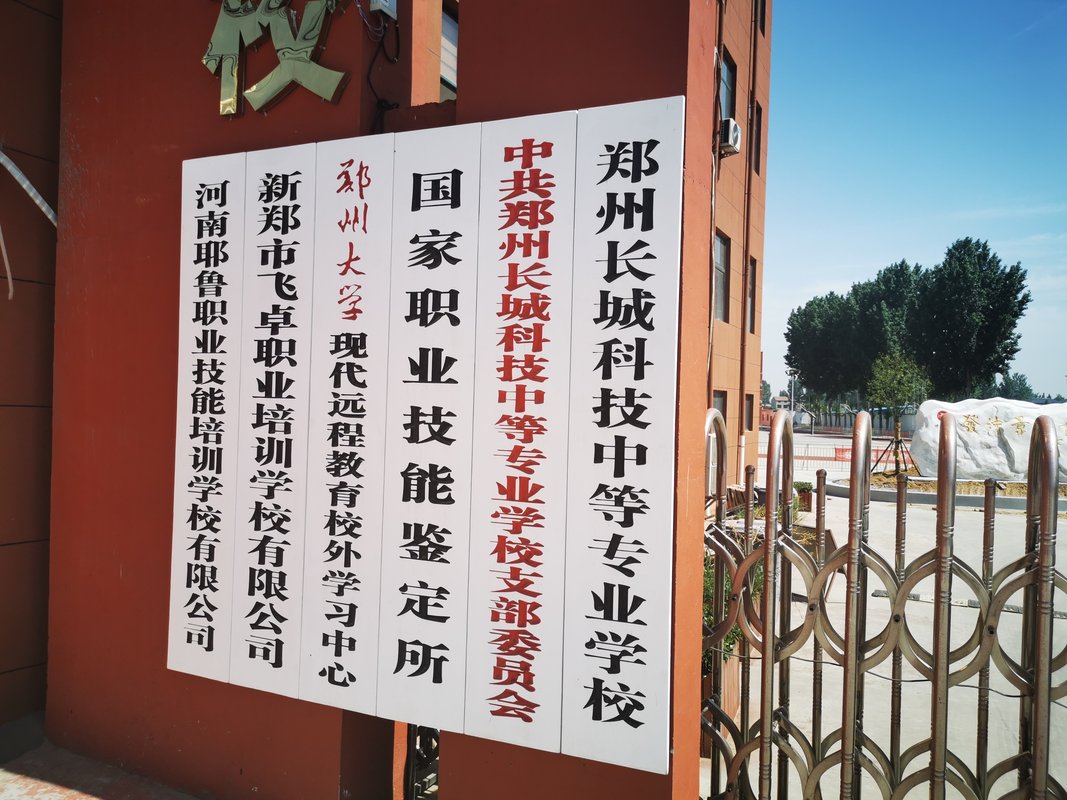 郑州长城科技中等专业学校
中共郑州长城科技中等专业学校支部委员会
国家职业技能鉴定所
郑州大学现代远程教育校外学习中心
新郑市飞卓职业培训学校有限公司
河南耶鲁职业技能培训学校有限公司